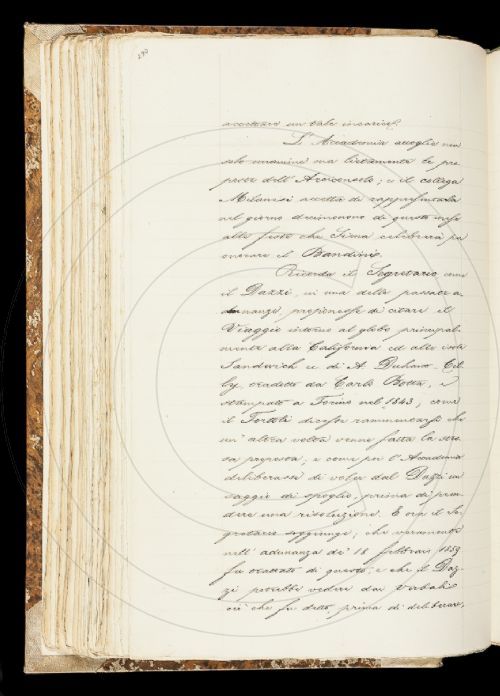 290
accettare un tale incarico.
L'Accademia accoglie non
solo unanime ma lietamente le pro
poste dell'Arciconsolo; e il collega
Milanesi accetta di rappresentarla
nel giorno decimonono di questo mese
alle feste che Siena celebrerà per
onorare il Bandini.
Ricorda il Segretario come
il Dazzi, in una delle passate a,
dunanze, proponesse di citare il
Viaggio intorno al globo principal,
mente alla California ed alle isole
Sandwich ec di A. Duhaut-Cil,
ly, tradotto da Carlo Botta, e
stampato a Torino nel 1843; come
il Tortoli dicesse rammentarsi che
un'altra volta venne fatta la stes,
sa proposta; e come poi l'Accademia
deliberasse di voler dal Dazzi un
saggio di spoglio, prima di pren,
dere una risoluzione. E ora il Se,
gretario soggiunge, che veramente
nell'adunanza de' 18 febbraio 1859
fu trattato di questo; e che il Daz,
zi potrebbe vedere dai verbali
ciò che fu detto prima di deliberare,